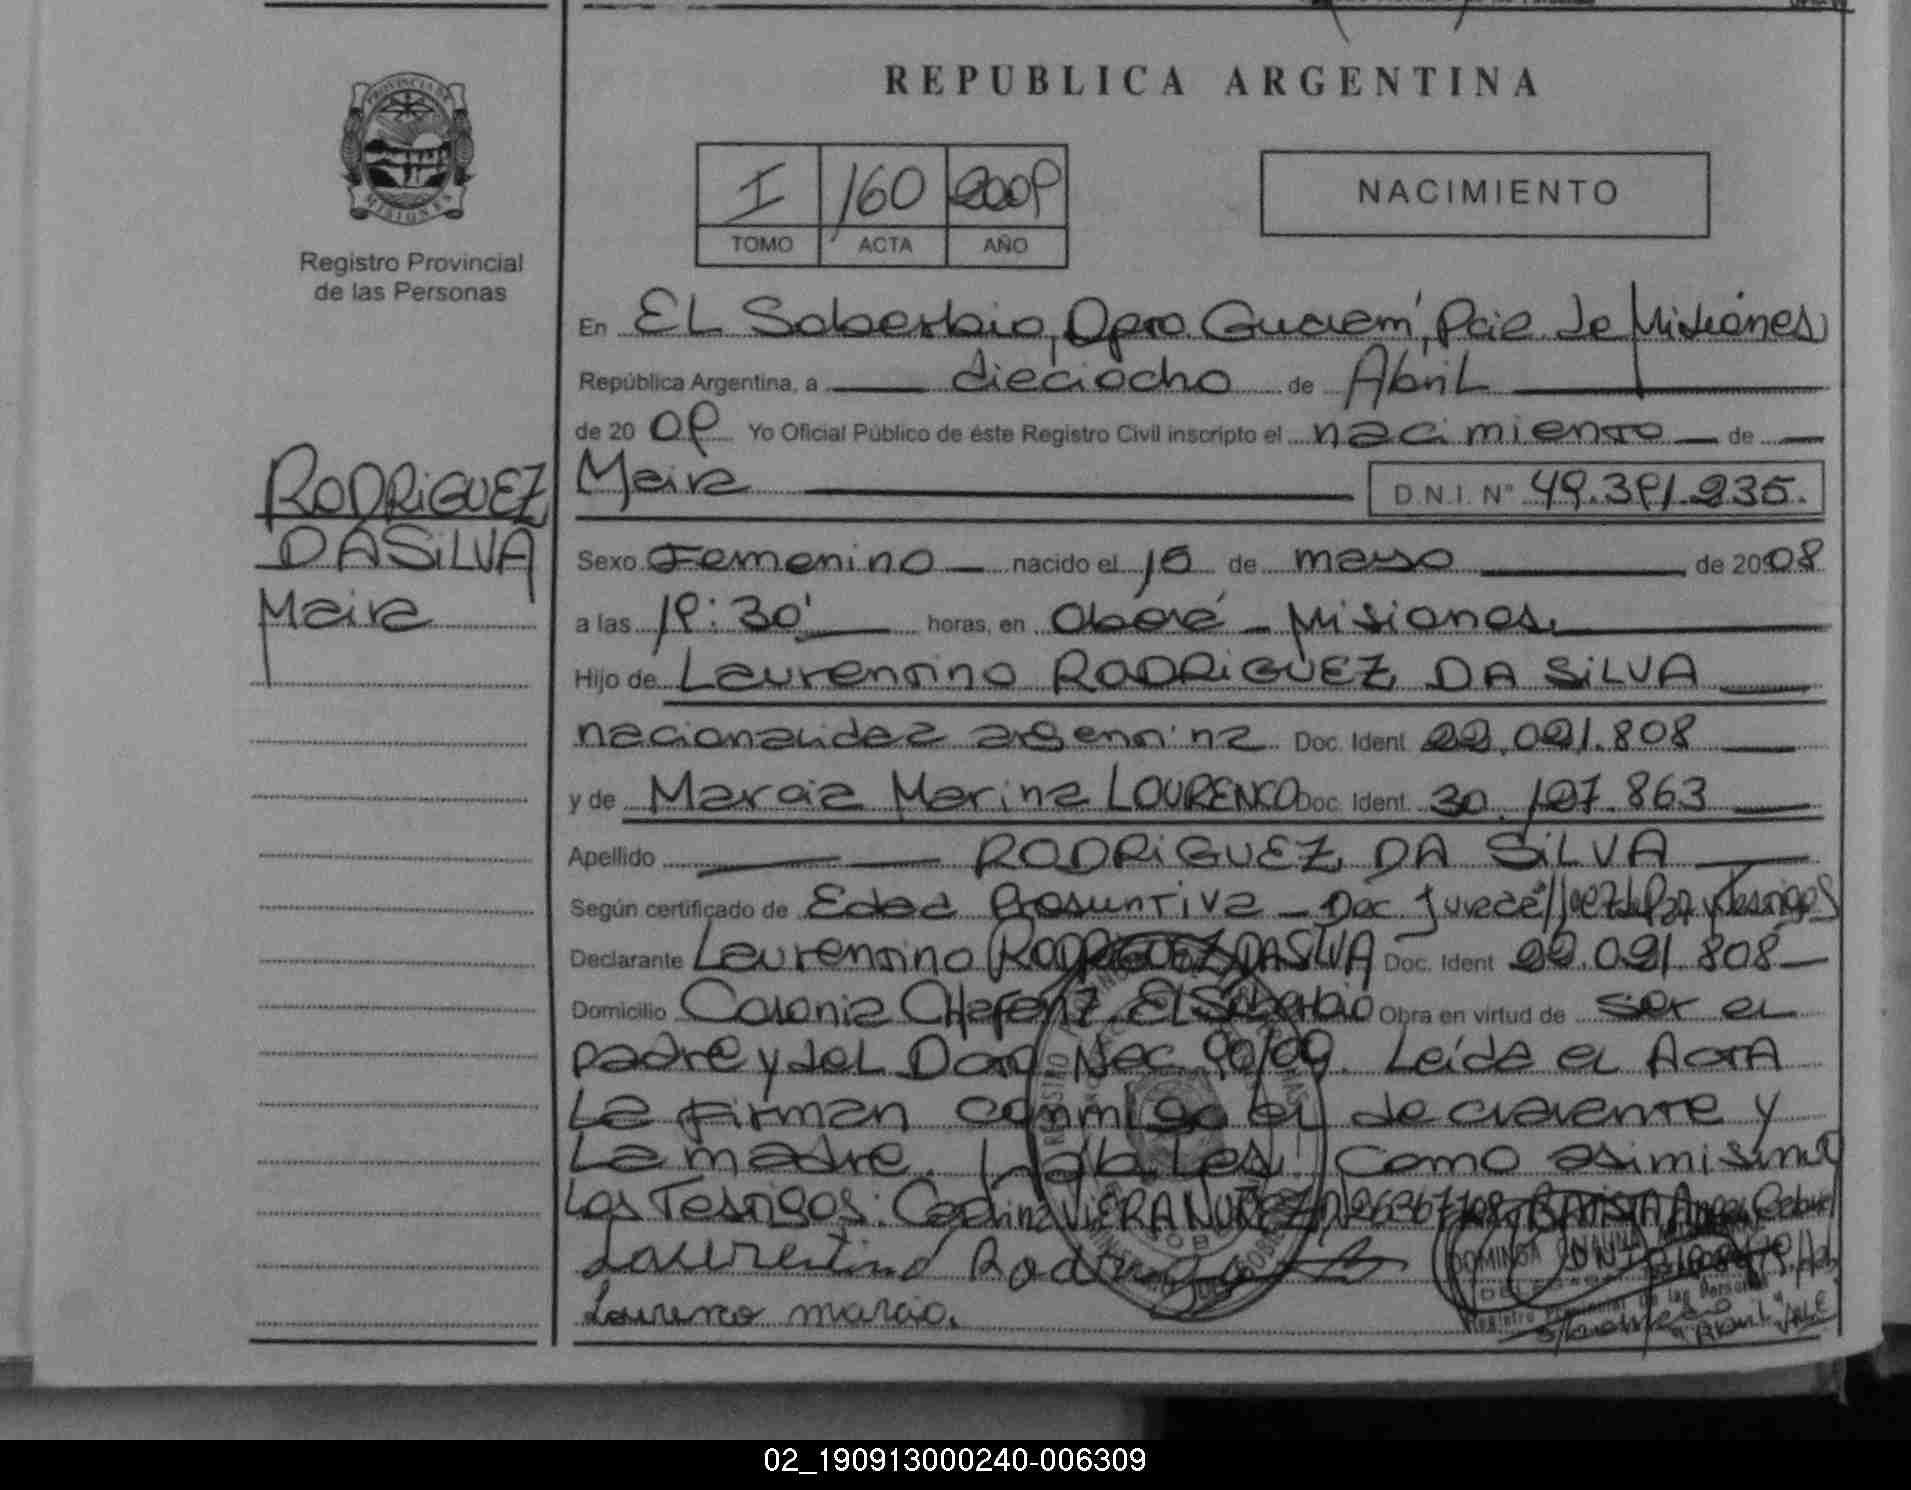 REPUBLICA ARGENTINA
PROVINCIA DE
MISIONES
Registro Provincial
de las Personas
I 160 2009
TOMO ACTA AÑO
NACIMIENTO
En EL Soberbio, Dpto. Guaraní, Pcia de Misiones
República Argentina, a dieciocho de Abril
de 2009 Yo Oficial Público de éste Registro Civil inscripto el nacimiento de
RODRiGUEZ
DA SiLVA
Maira
Maira D.N.I. N° 49.391.235.
Sexo Femenino nacido el 15 de mayo de 2008
a las 19:30' horas, en Oberá - Misiones.
Hijo de Laurentino RODRiGUEZ DA SiLVA
nacionalidad argentina Doc. Ident. 22.021.808
y de Marcia Marina LOURENCO Doc. Ident. 30.127.863
Apellido RODRiGUEZ DA SiLVA
Según certificado de Edad Presuntiva - Dec. Jurada / Juez de Paz y Testigos
Declarante Laurentino RODRIGUEZ DA SILVA Doc. Ident 22.021.808
Domicilio Colonia Chafariz El Soberbio Obra en virtud de ser el
padre y del Dom Nac 90/09. Leída el Acta
La firman conmigo el declarante y
La madre. Hábiles! Como asimismo
Los Testigos: VIERA NUÑEZ BATISTA Angel Gabriel
Laurentino Rodrigo
Lourenco marcia.
DOMINGA
Registro Provincial de las Personas
02_190913000240-006309